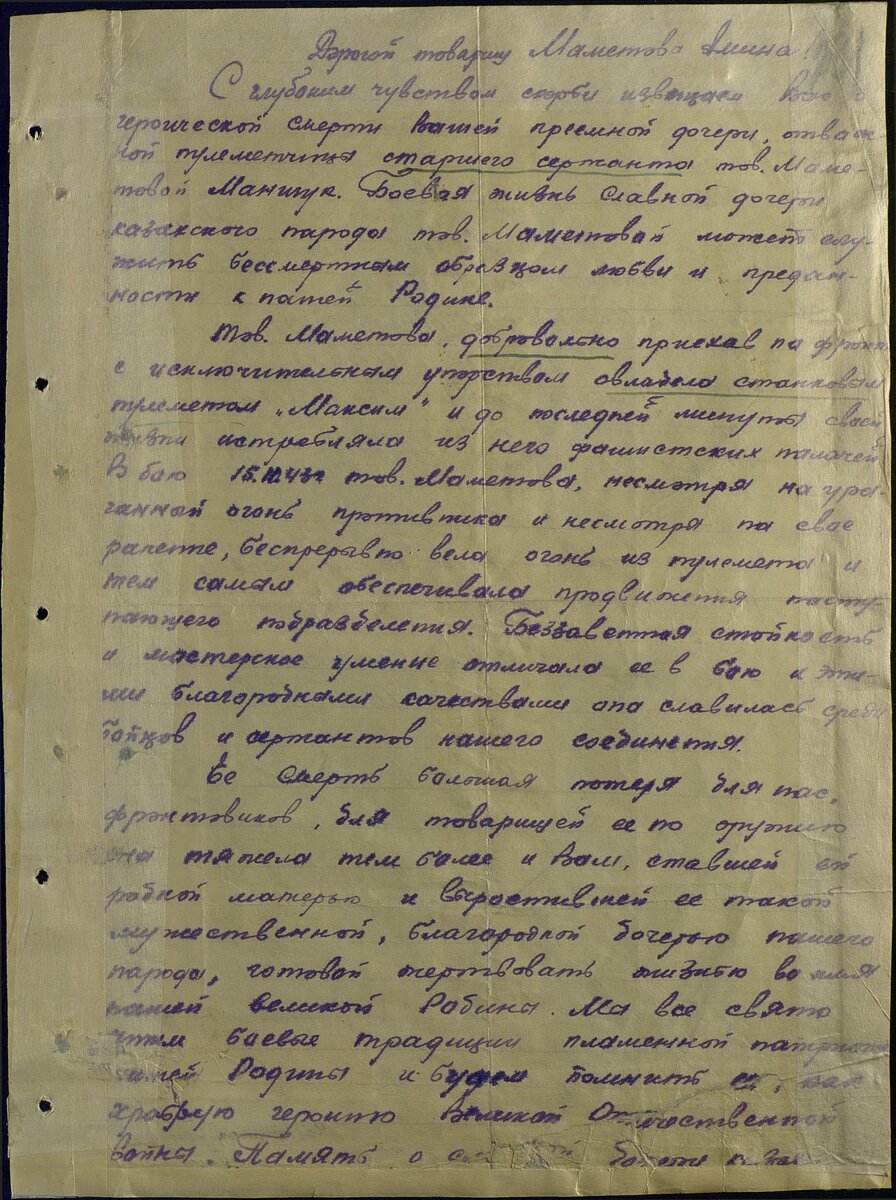 Дорогой товарищ Маметова Амина!
С глубоким чувством скорби извещаем Вас о
героической смерти Вашей приемной дочери, отваж-
ной пулеметчицы старшего сержанта тов. Маме-
товой Маншук. Боевая жизнь славной дочери
казахского народа тов. Маметовой может слу-
жить бессмертным образцом любви и предан-
ности к нашей Родине.
Тов. Маметова, добровольно приехав на фронт
с исключительным упорством овладела станковым
пулеметом „Максим" и до последней минуты своей
жизни истребляла из него фашистских палачей
В бою 15.10.43г тов. Маметова, несмотря на ура-
ганный огонь противника и несмотря на свое
ранение, беспрерывно вела огонь из пулемета и
тем самым обеспечивала продвижения насту-
пающего подразделения. Беззаветная стойкость
и мастерское умение отличала ее в бою и эти-
ми благородными качествами она славилась среди
бойцов и сержантов нашего соединения.
Ее смерть большая потеря для нас,
фронтовиков, для товарищей ее по оружию
она тяжела тем более и Вам, ставшей ей
родной матерью и вырастившей ее такой
мужественной, благородной дочерью нашего
народа, готовой жертвовать жизнью во имя
нашей великой Родины. Мы все свято
чтим боевые традиции пламенной патриотки
нашей Родины и будем помнить ее, как
храбрую героиню Великой Отечественной
войны. Память о